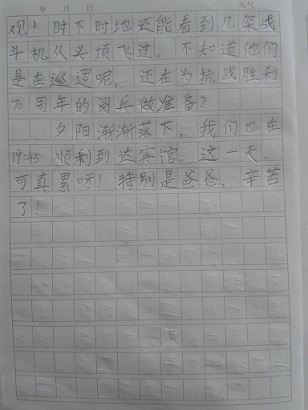 年 月 日 天气
观！时不时地还能看到几架战
斗机从头顶飞过。不知道他们
是在巡逻呢，还在为抗战胜利
70周年的阅兵做准备？
夕阳渐渐落下，我们也在
17:45顺利到达宾馆。这一天，
可真累呀！特别是爸爸，辛苦
了！